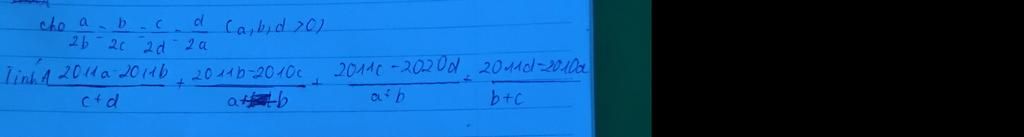 cho a/2b = b/2c = c/2d = d/2a (a, b, d > 0)
Tính A 2011a-2011b/c+d + 2011b-2010c/a+b + 2011c-2020d/a+b + 2011d-2010a/b+c